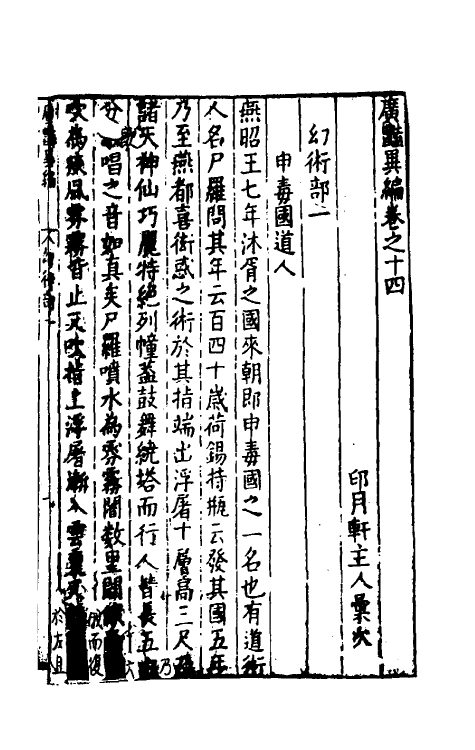 廣豔異編卷之十四
印月軒主人彙次
幻術部一
申毒國道人
燕昭王七年沐胥之國來朝即申毒國之一名也有道術
人名尸羅問其年云百四十歲荷錫持瓶云發其國五年
乃至燕都喜衒惑之術於其指端出浮屠十層高三尺
諸天神仙巧麗特絕列幢蓋鼓舞繞塔而行人皆長五
分 歌唱之音如真矣尸羅噴水為雰霧闇數里間俄而復
吹為疾風雰霧皆止又吹指上浮屠漸入雲裏 於左耳